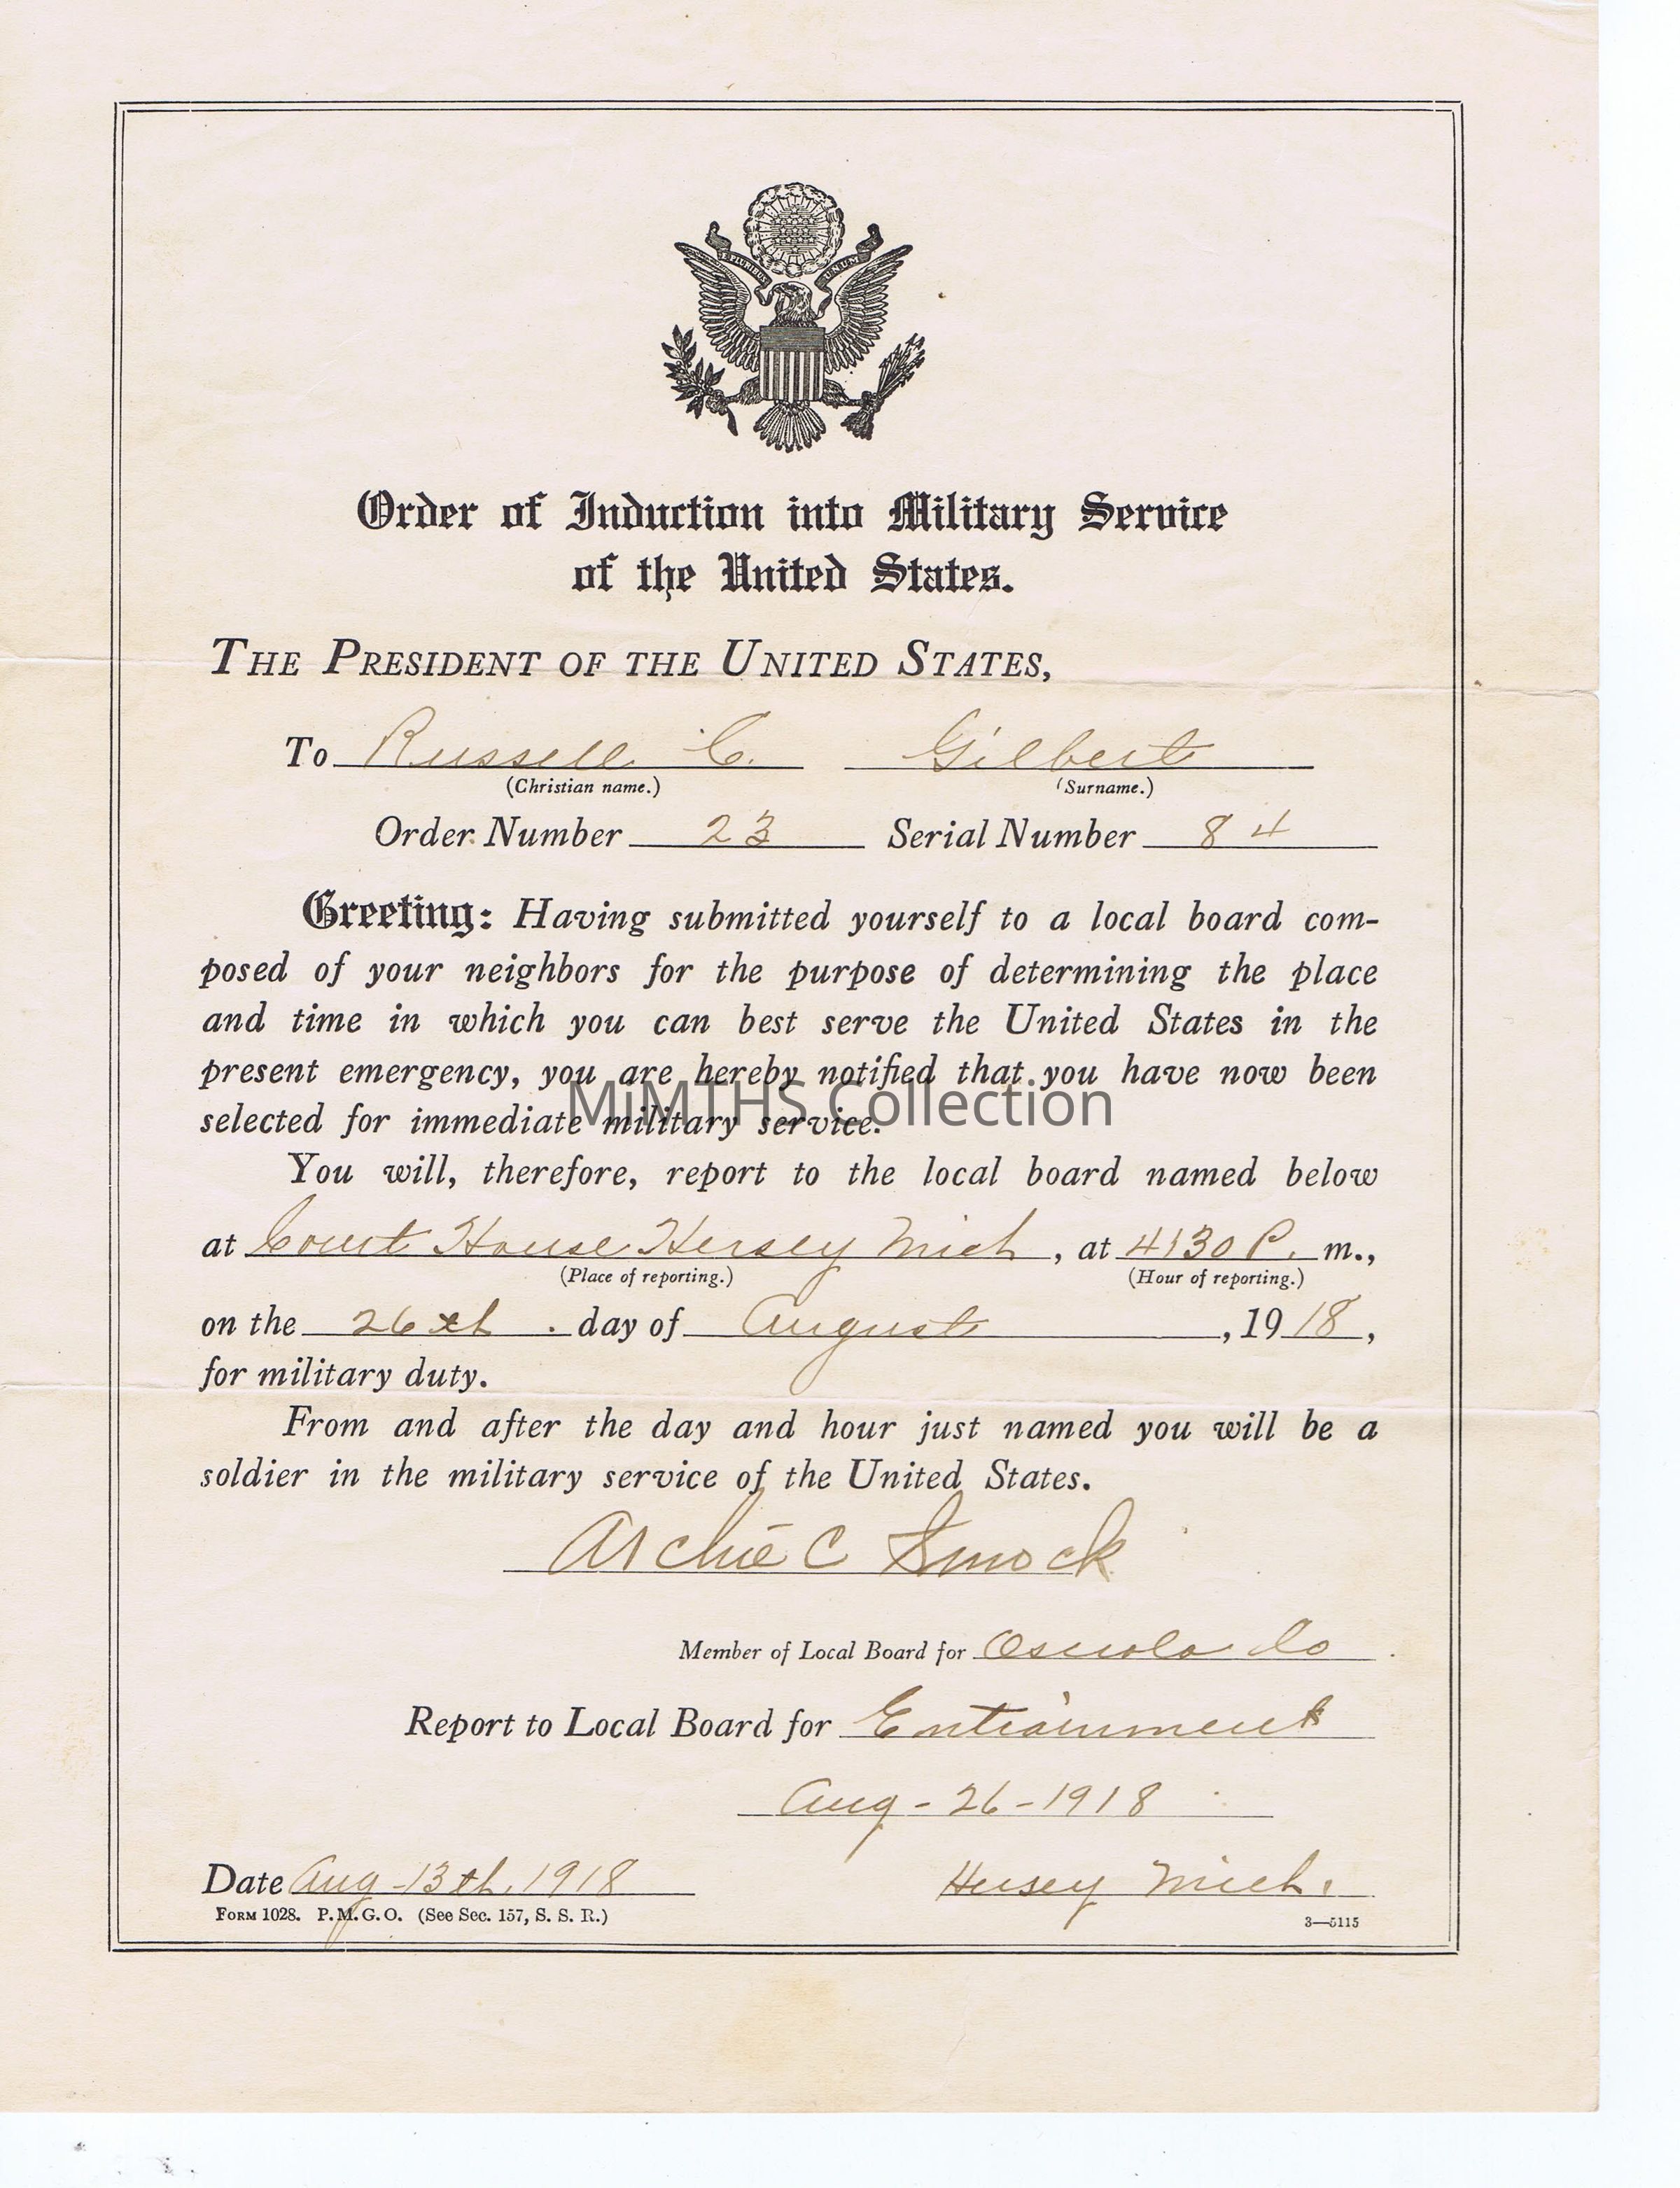 E PLURIBUS UNUM
Order of Induction into Military Service
of the United States.
THE PRESIDENT OF THE UNITED STATES,
To Russell C. Gilbert
(Christian name.) (Surname.)
Order Number 23 Serial Number 84
Greeting: Having submitted yourself to a local board com-
posed of your neighbors for the purpose of determining the place
and time in which you can best serve the United States in the
present emergency, you are hereby notified that you have now been
MiMTHS Collection
selected for immediate military service.
You will, therefore, report to the local board named below
at Court House Hersey Mich, at 4:30 P. m.,
(Place of reporting.) (Hour of reporting.)
on the 26th day of August, 1918,
for military duty.
From and after the day and hour just named you will be a
soldier in the military service of the United States.
Archie C Smock
Member of Local Board for Osceola Co
Report to Local Board for Entrainment
Aug-26-1918
Date Aug-13th, 1918 Hersey Mich.
FORM 1028. P.M.G.O. (See Sec. 157, S. S. R.) 3—5115